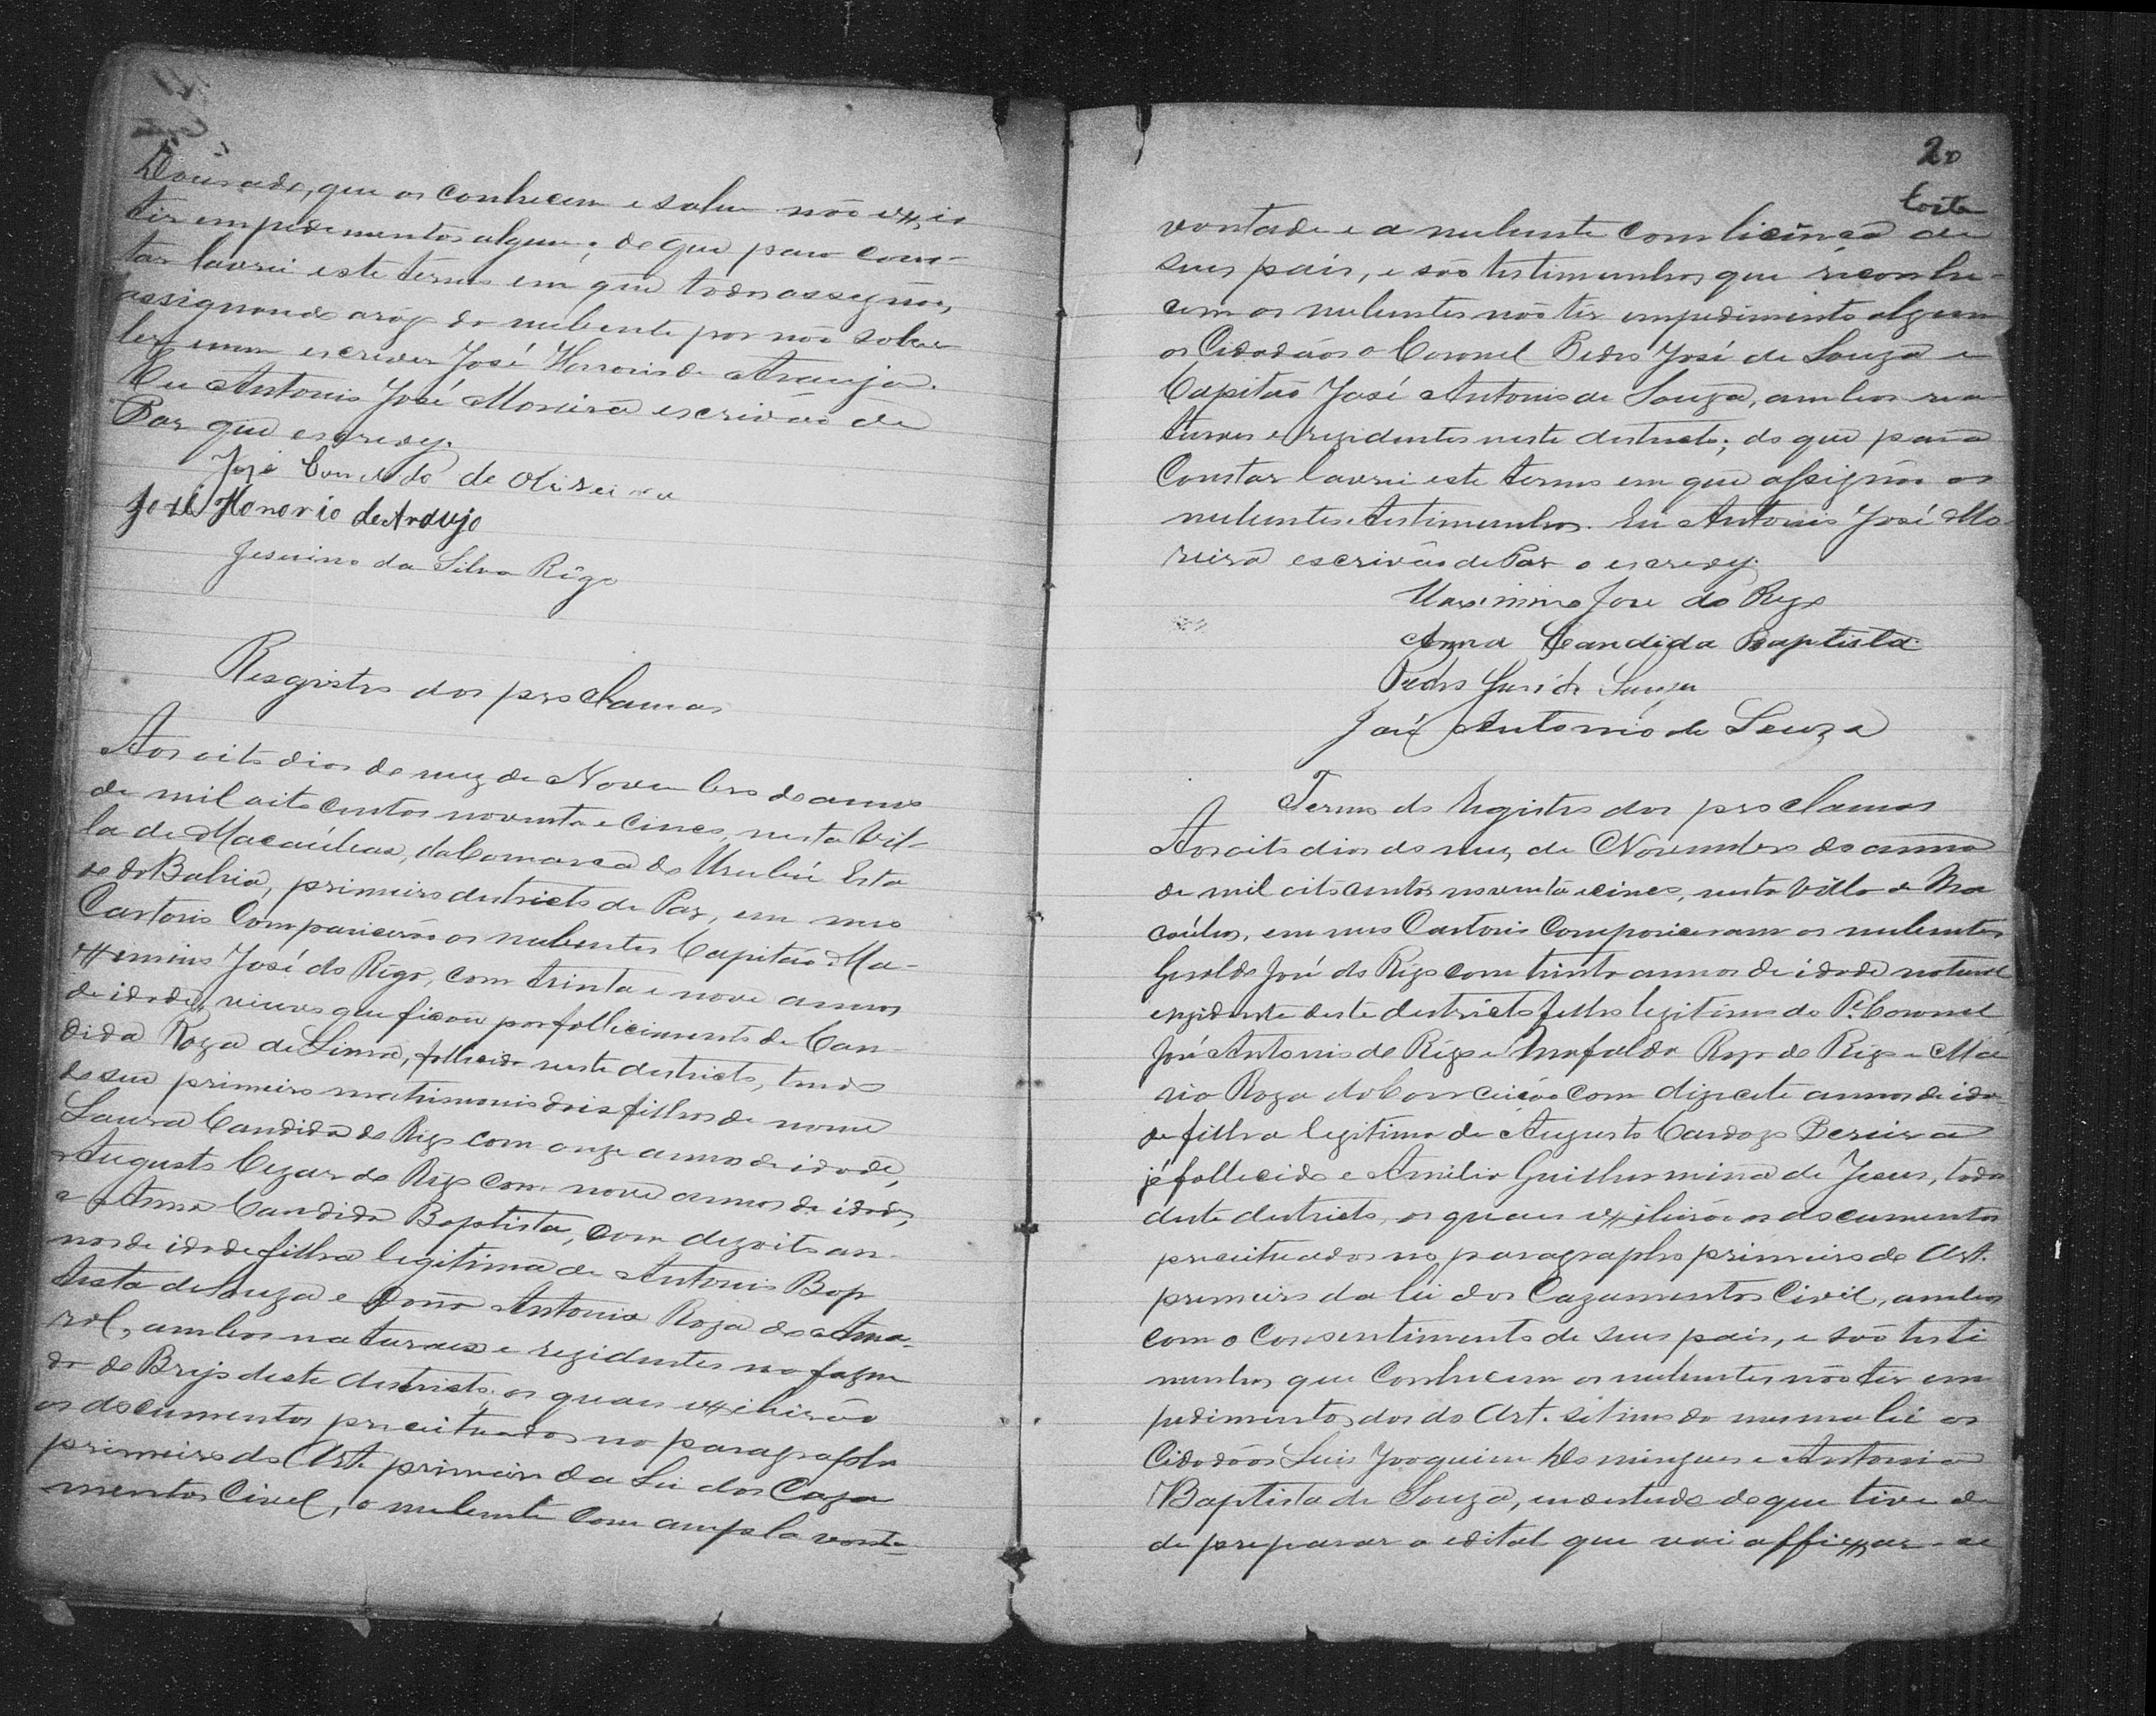 Dourado, que os conhecem e sabem não exxis
tir empedimentos algum; do que para cons-
tar lavrei este termo em que todos assignão,
assignando arogo do nubente por não saber
ler nem escrever José Honorio de Araujo.
Eu Antonio José Moreira escrivão de
Paz que escrevy.
José Con de Oliveira
José Honorio de Araujo
Jesuino da Silva Rêgo
Resgistro dos proclamas
Aos oito dias do mez de Novembro do anno
de mil oito centos noventa e cinco, nesta Vil-
la de Macaúbas, da Comarca do Urubú Esta
do da Bahia, primeiro destricto de Paz, em meo
Cartorio Comparicerão os nubentes Capitão Ma-
xximino José do Rêgo, com trinta e nove annos
de idade, viuvo que ficou por fallicimento de Can
dida Roza de Lima, fallicida neste destricto, tendo
de seu primeiro matrimonio dois filhos de nome
Laura Candida do Rêgo com onze annos de idade,
Augusto Cezar do Rêgo com nove annos de idade,
e Anna Candida Baptista, com dezoito an-
nos de idade filha legitima de Antonio Bap
tista de Souza e Dona Antonia Roza do Ama-
ral, ambos naturaes e rezidentes na fazen
da do Brejo deste destricto, os quaes exxibirão
os documentos preceituados no paragrapho
primeiro do Art. primeiro da Lei dos Caza
mentos Civel, o nubente com ampla vonta-
20
Costa
vontade e a nubente com licença de
seus pais, e são testimunhas que reconhe-
cem os nubentes não têr empedimento algum
os Cidadãos o Coronel Pedro José de Souza e
Capitão José Antonio de Souza, ambos na
turaes e rezidentes neste destricto; do que para
Constar lavrei este termo em que assignão os
nubentes e testimunhas. Eu Antonio José Mo
reira escrivão de Paz o escrevy.
Maximino Jose do Rego
Anna Candida Baptista
Pedro José de Souza
José Antonio de Souza
Termo do Registro dos proclamas
Aos oito dias do mez de Novembro do anno
de mil oito centos noventa e cinco, nesta Villa de Ma
caúbas, em meo Cartorio Compariceram os nubentes
Geraldo José do Rêgo com trinta annos de idade natural
e rezidente deste destricto filho legitimo do Te. Coronel
José Antonio do Rêgo e Mafalda Roza do Rêgo e Ma
ria Roza da Conceição com dizecete annos de ida
de filha legitima de Augusto Cardozo Pereira
já fallicido e Amelia Guilhermina de Jesus, todos
deste destricto, os quaes exxibirão os documentos
preceituados no paragrapho primeiro do Art.
premeiro da lei dos Cazamentos Civil, ambos
com o Consentimento de seus pais, e são testi
munhas que Conhecem os nubentes não têr em
pedimentos dos do Art. sétimo da mesma lei os
Cidadãos Luis Joaquim Domingues e Antonio
Baptista de Souza, do que tive de
de preparar o edital que vai affixxar-se